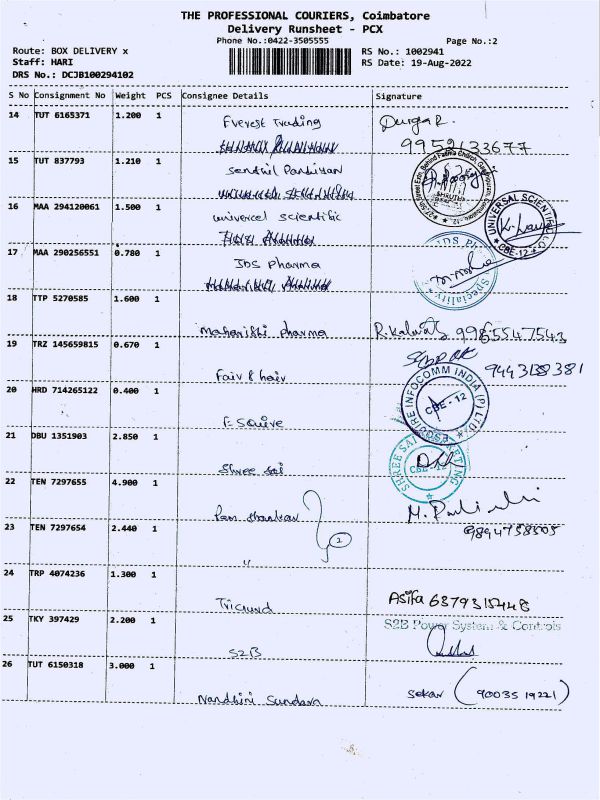 THE PROFESSIONAL COURIERS, Coimbatore
Delivery Runsheet - PCX
Phone No.:0422-3505555
Page No.:2
Route: BOX DELIVERY x
RS No.: 1002941
Staff: HARI
RS Date: 19-Aug-2022
DRS No.: DCJB100294102
S No Consignment No Weight PCS Consignee Details Signature
14 TUT 6165371 1.200 1 Everest Trading Durga R.
9952133677
15 TUT 837793 1.210 1 Senthil Pandiyan
16 MAA 294120061 1.500 1 univercel scientific
UNIVERSAL SCIENTIFIC
CBE-12
17 MAA 290256551 0.780 1 JDS Pharma
JDS
Speciality
18 TTP 5270585 1.600 1 Maharishi pharma 9965547543
19 TRZ 145659815 0.670 1 Fair & hair
20 HRD 714265122 0.400 1 E-squire
ESQUIRE INFOCOMM INDIA (P) LTD
CBE - 12
21 DBU 1351903 2.850 1 Shree Sai
SHREE SAI
CBE-12
22 TEN 7297655 4.900 1 Ram Shankar
2
9894758505
23 TEN 7297654 2.440 1 "
24 TRP 4074236 1.300 1 Asifa
25 TKY 397429 2.200 1 S2B
S2B Power System & Controls
26 TUT 6150318 3.000 1 Nandhini Sundara Sekar (9003519221)